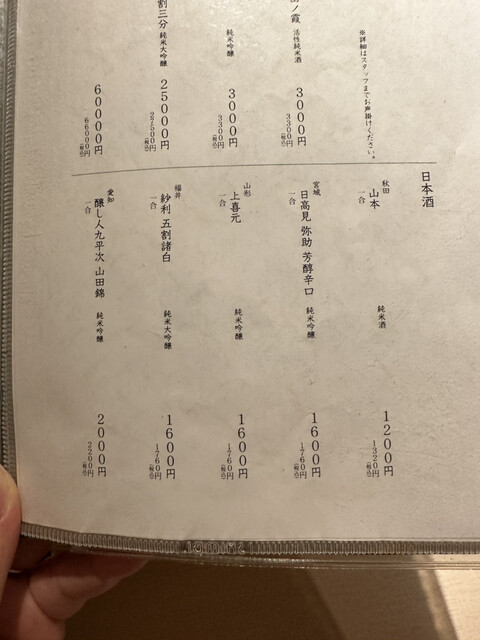 ※詳細はスタッフまでお声掛けください。
ノ霞 活性純米酒 3000円
3300円(税込)
純米吟醸 3000円
3300円(税込)
割三分 純米大吟醸 25000円
27500円(税込)
60000円
66000円(税込)
日本酒
秋田
山本 純米酒 1200円
一合 1320円(税込)
宮城
日高見 弥助 芳醇辛口 純米吟醸 1600円
一合 1760円(税込)
山形
上喜元 純米吟醸 1600円
一合 1760円(税込)
福井
紗利 五割諸白 純米大吟醸 1600円
一合 1760円(税込)
愛知
醸し人九平次 山田錦 純米吟醸 2000円
一合 2200円(税込)